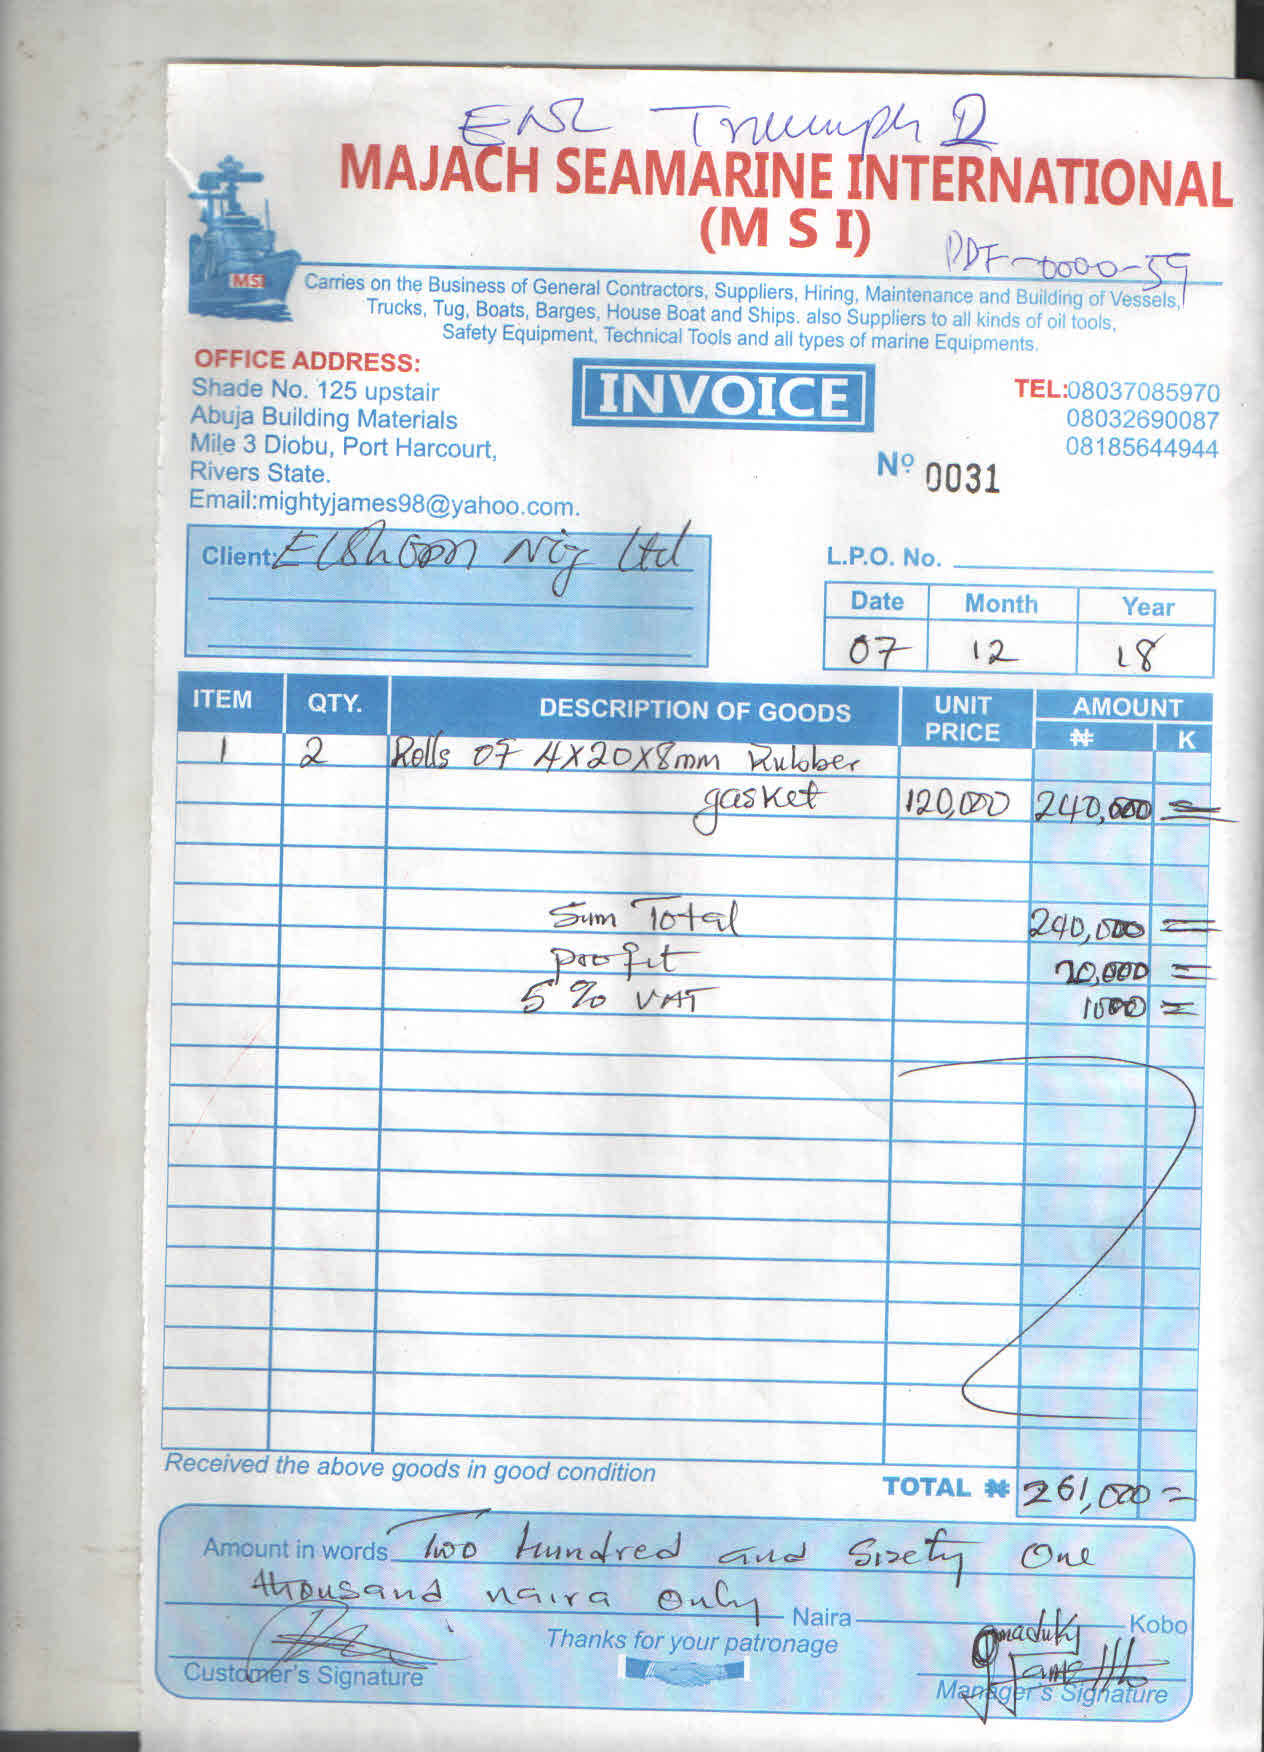 ENSL Triumph D
MAJACH SEAMARINE INTERNATIONAL
(M S I)
PDF-0000-59
MSI
Carries on the Business of General Contractors, Suppliers, Hiring, Maintenance and Building of Vessels,
Trucks, Tug, Boats, Barges, House Boat and Ships. also Suppliers to all kinds of oil tools,
Safety Equipment, Technical Tools and all types of marine Equipments.
OFFICE ADDRESS:
Shade No. 125 upstair
Abuja Building Materials
Mile 3 Diobu, Port Harcourt,
Rivers State.
Email:mightyjames98@yahoo.com.
INVOICE
TEL:08037085970
08032690087
08185644944
Nº 0031
Client: Elshcon Nig Ltd
L.P.O. No.
Date Month Year
07 12 18
ITEM QTY. DESCRIPTION OF GOODS UNIT PRICE AMOUNT ₦ K
1 2 Rolls of 4X20X8mm Rubber
gasket 120,000 240,000 =
Sum Total 240,000 =
profit 20,000 =
5% VAT 1000 =
Received the above goods in good condition
TOTAL ₦ 261,000 =
Amount in words Two hundred and Sixety One
thousand naira Only Naira Kobo
Thanks for your patronage
Customer's Signature
Manager's Signature